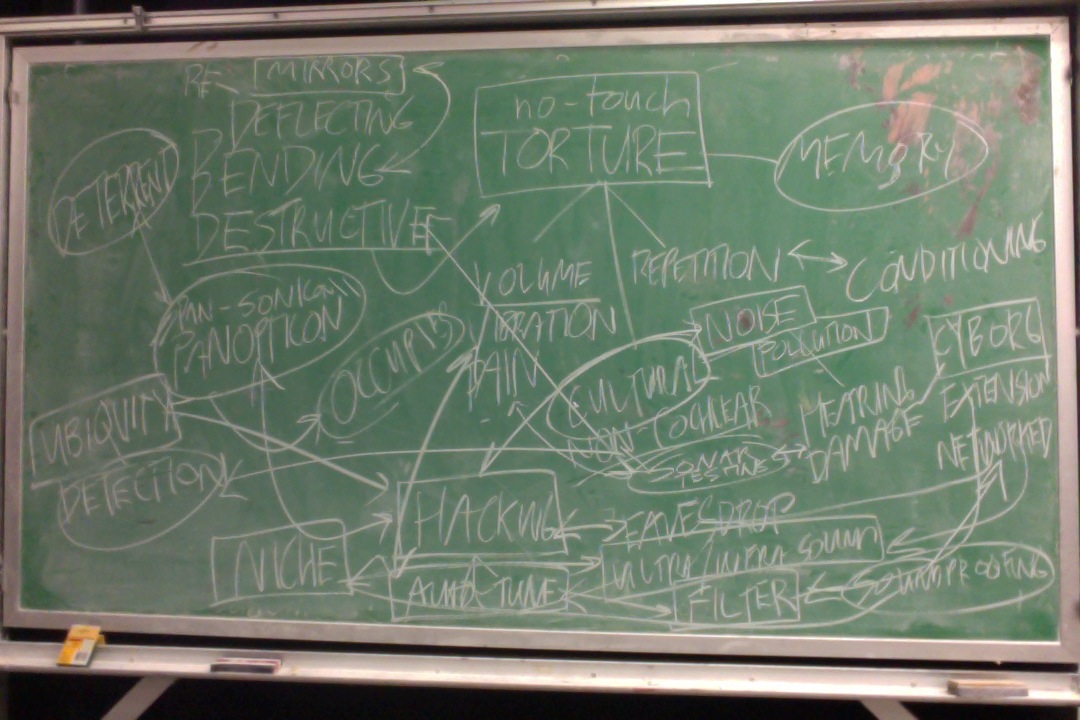 RE- MIRRORS
DEFLECTING
BENDING
DESTRUCTIVE
DETERRENT
no-touch
TORTURE
MEMORY
PAN-SONICON
PANOPTICON
OCCUPIES
VOLUME
VIBRATION
PAIN
REPETITION
CONDITIONING
NOISE
POLLUTION
CULTURAL
NON COCHLEAR
SONAR
HEARING
DAMAGE
CYBORG
EXTENSION
NETWORKED
UBIQUITY
DETECTION
HACKING
NICHE
AUTO-TUNE
EAVESDROP
ULTRA/INFRA SOUND
FILTER
SOUNDPROOFING